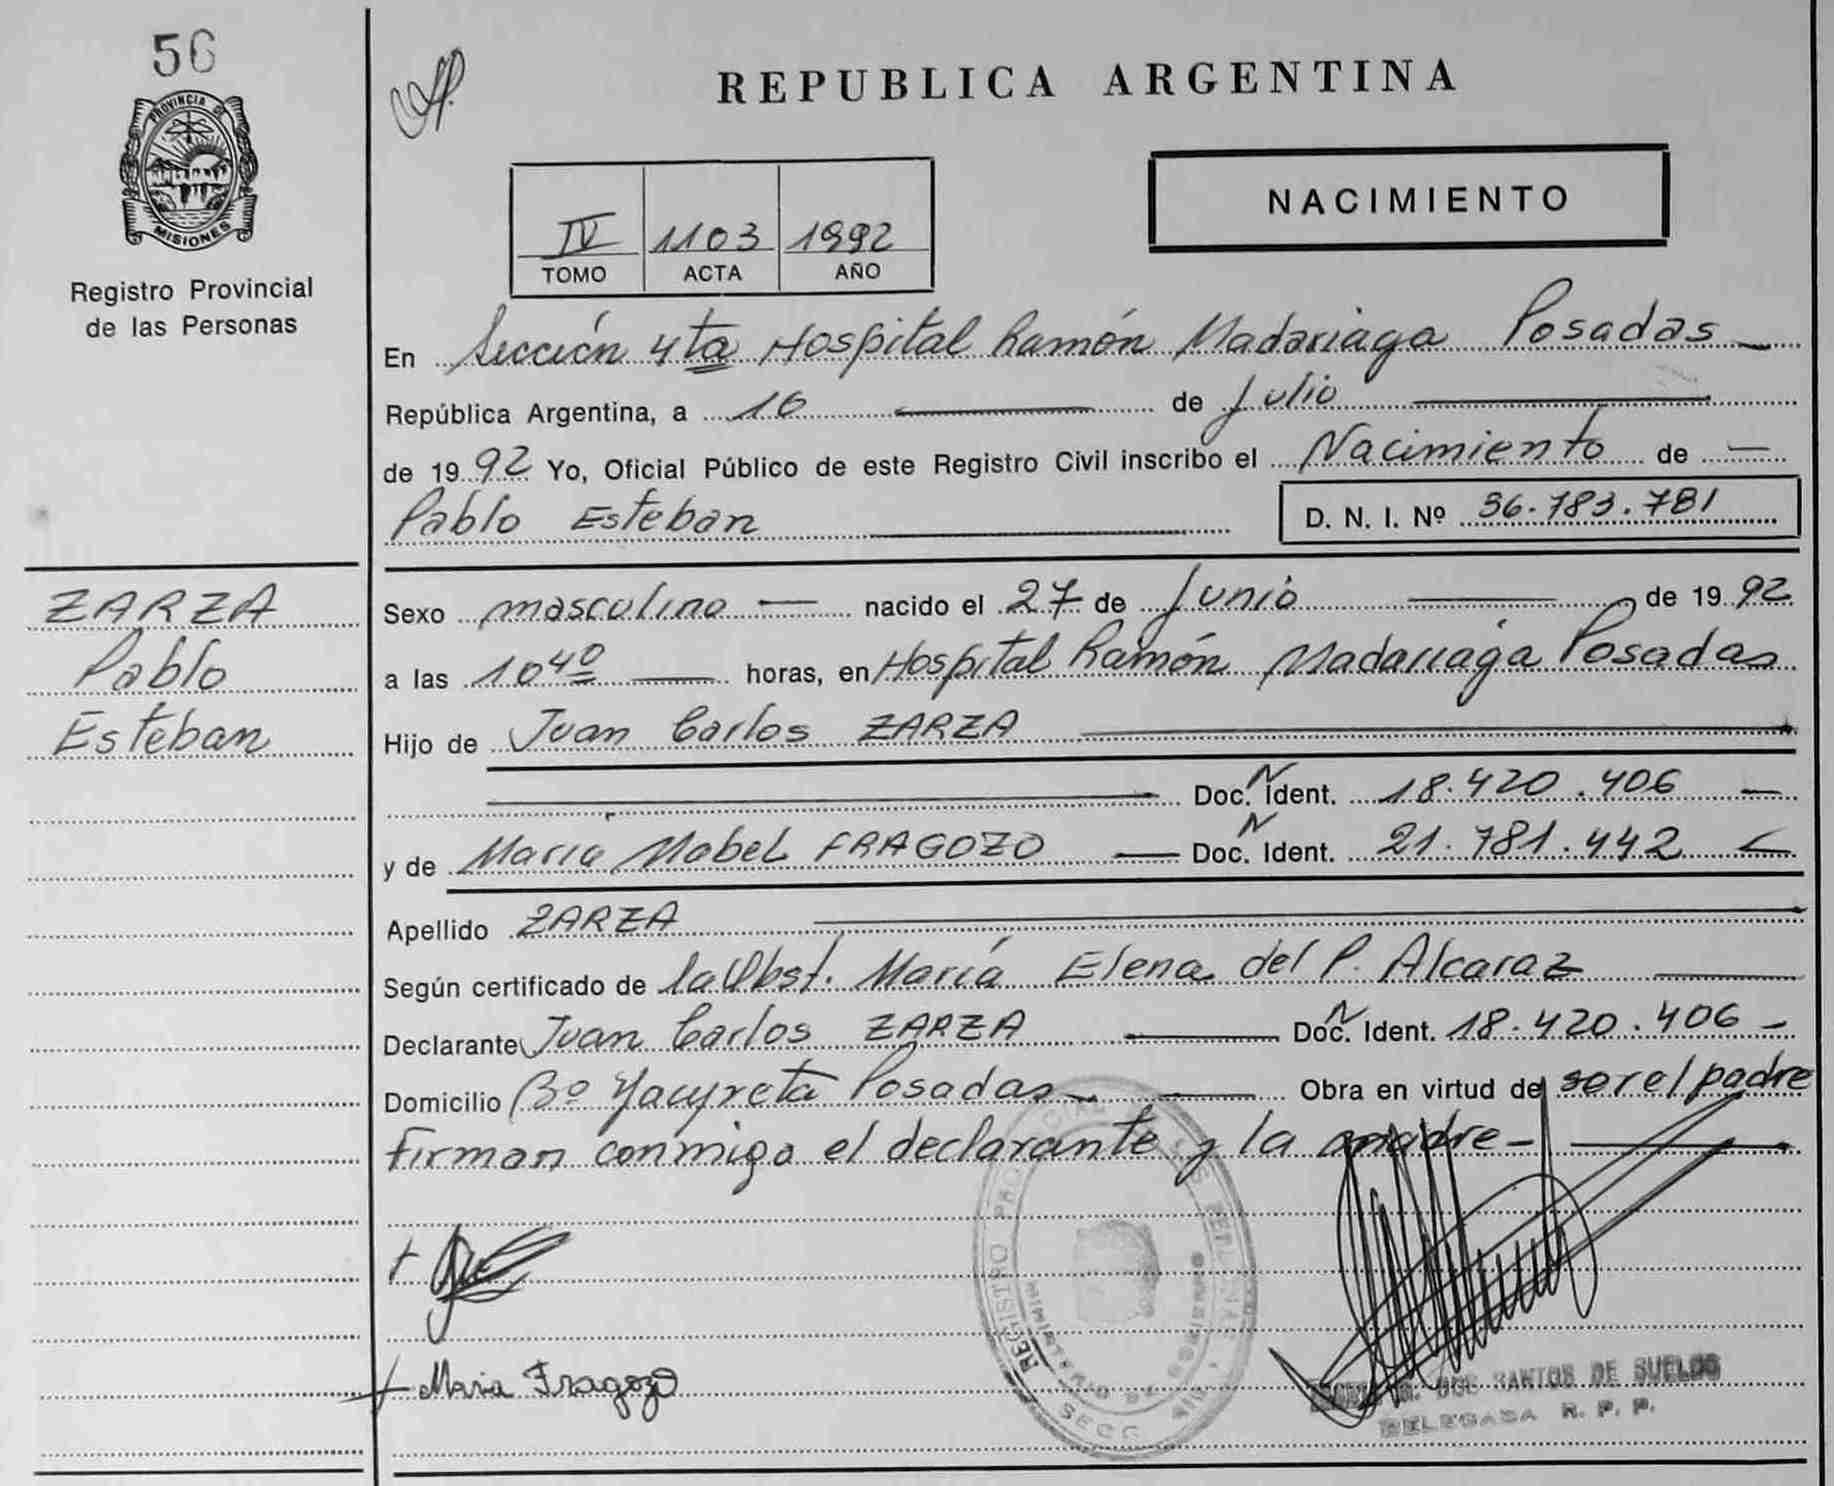 56
PROVINCIA DE
MISIONES
Registro Provincial
de las Personas
REPUBLICA ARGENTINA
NACIMIENTO
IV 1103 1992
TOMO ACTA AÑO
En Sección 4ta Hospital Ramón Madariaga Posadas
República Argentina, a 16 de Julio
de 1992 Yo, Oficial Público de este Registro Civil inscribo el Nacimiento de
Pablo Esteban
D. N. I. Nº 36.783.781
ZARZA
Pablo
Esteban
Sexo masculino nacido el 27 de Junio de 1992
a las 10 40 horas, en Hospital Ramón Madariaga Posadas
Hijo de Juan Carlos ZARZA
Doc. N Ident. 18.420.406
y de María Mabel FRAGOZO Doc. N Ident. 21.781.442
Apellido ZARZA
Según certificado de la Obst. María Elena del P. Alcaraz
Declarante Juan Carlos ZARZA Doc. N Ident. 18.420.406
Domicilio Bº Yacyreta Posadas Obra en virtud de ser el padre
Firman conmigo el declarante y la madre
Maria Fragozo
REGISTRO
MINISTERIO DE
SECC
DOS SANTOS DE SUELOS
DELEGADA R. P. P.